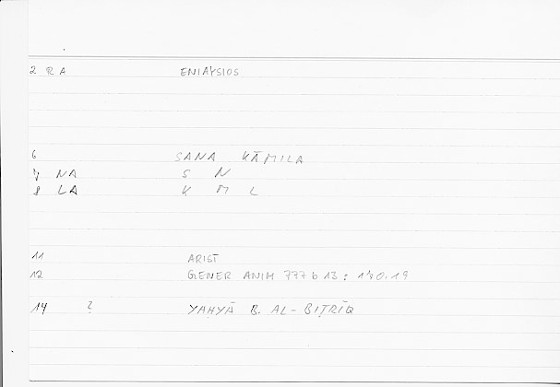 2 R A ENIAYSIOS
6 SANA KĀMILA
7 NA S N
8 LA K M L
11 ARIST
12 GENER ANIM 777 b 13 : 170.19
14 ? YAHYĀ B. AL-BIṬRĪQ